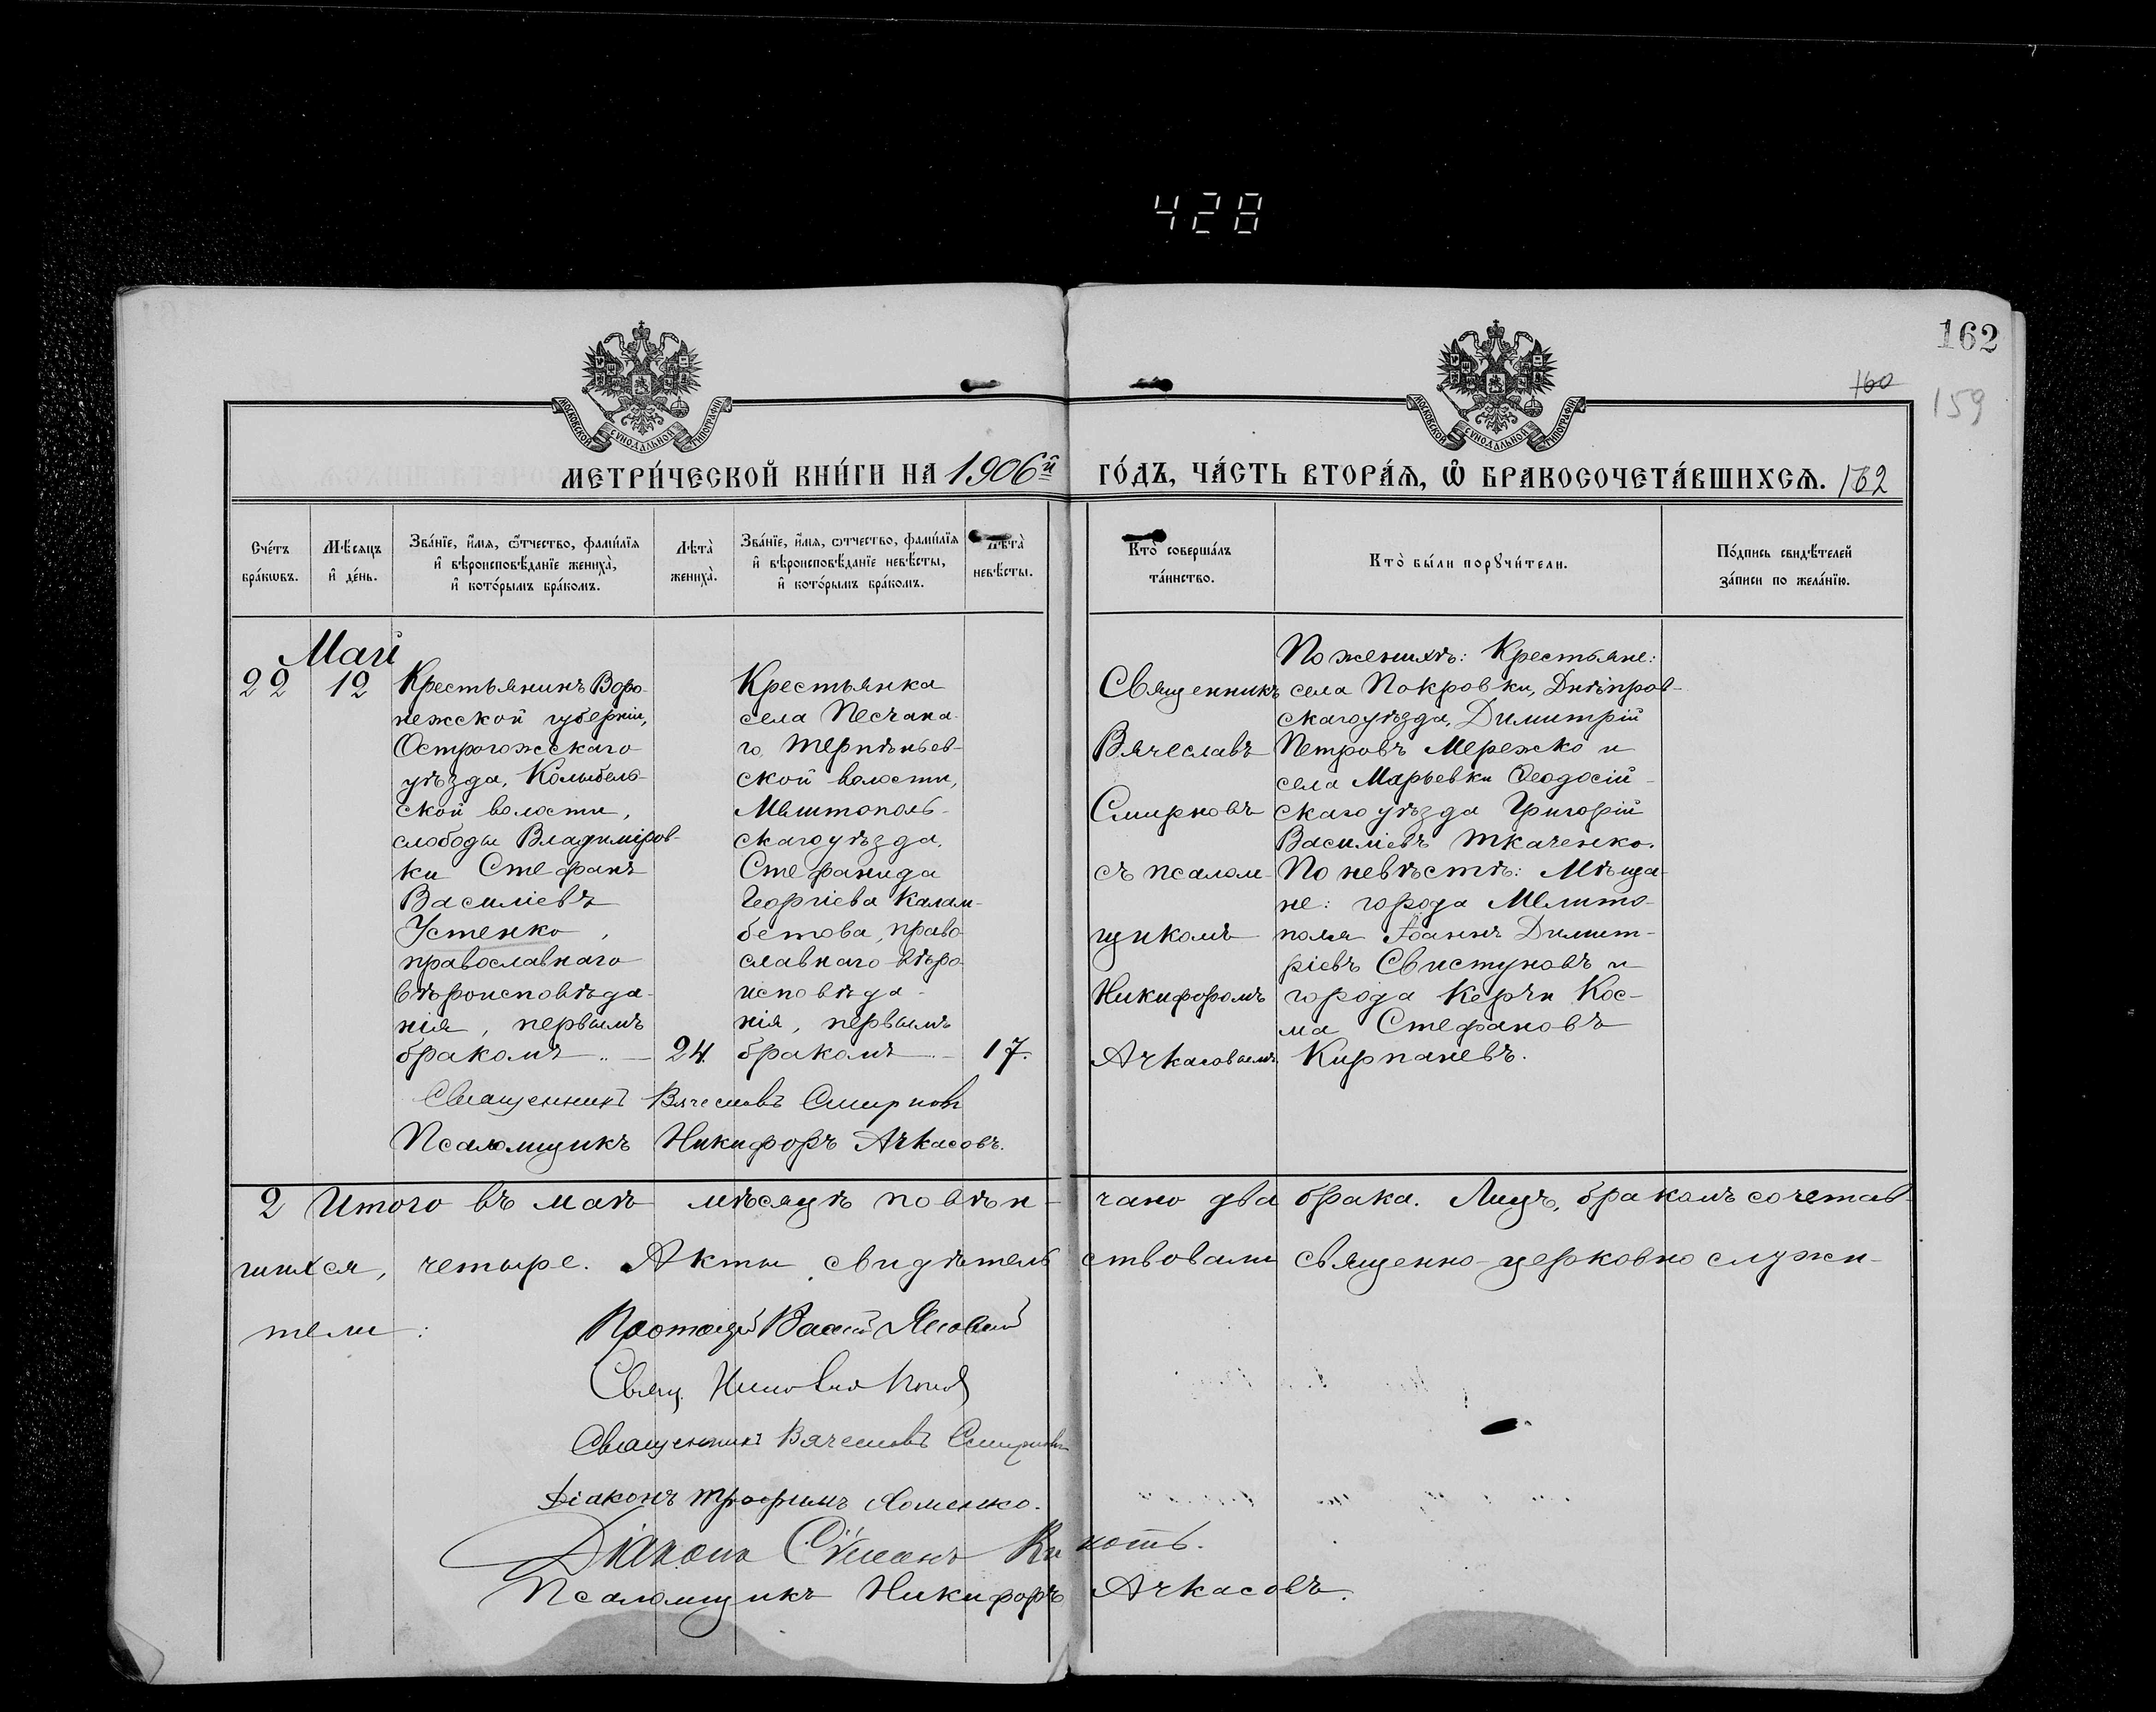 428
162
160
159
МОСКОВСКОЙ СУНОДАЛЬНОЙ ТИПОГРАФІИ
МОСКОВСКОЙ СУНОДАЛЬНОЙ ТИПОГРАФІИ
МЕТРИ́ЧЕСКОЙ КНИ́ГИ НА 1906й ГО́ДЪ, ЧА́СТЬ ВТОРА́Ѧ, Ѡ҆ БРАКОСОЧЕТА́ВШИХСѦ. 162
Сче́тъ бра́кѡвъ.
Мѣ́сѧцъ и҆ де́нь.
Зва́нїе, и҆́мѧ, ѻ҆́тчество, фами́лїѧ и҆ вѣроисповѣ́данїе жениха̀, и҆ кото́рымъ бра́комъ.
Лѣта̀ жениха̀.
Зва́нїе, и҆́мѧ, ѻтчество, фами́лїѧ и҆ вѣроисповѣ́данїе невѣ́сты, и҆ кото́рымъ бра́комъ.
Лѣта̀ невѣ́сты.
Кто̀ соверша́лъ та́инство.
Кто̀ бы́ли порꙋчи́тели.
По́дпись свидѣ́телей за́писи по жела́нїю.
Май
22
12
Крестьянинъ Воро-
нежской губерніи,
Острогожскаго
уѣзда, Колыбель-
ской волости,
слободы Владиміров-
ки Стефанъ
Василіевъ
Устенко,
православнаго
вѣроисповѣда-
нія, первымъ
бракомъ
24.
Крестьянка
села Песчана-
го, Терпѣньев-
ской волости,
Мелитополь-
скаго уѣзда,
Стефанида
Георгіева Калам-
бетова, право-
славнаго вѣро-
исповѣда-
нія, первымъ
бракомъ
17.
Священникъ
Вячеславъ
Смирновъ
съ псалом-
щикомъ
Никифоромъ
Ачкасовымъ
По женихѣ: Крестьяне:
села Покровки, Днѣпров-
скаго уѣзда, Димитрій
Петровъ Мережко и
села Марьевки Ѳеодосій-
скаго уѣзда Григорій
Василіевъ Ткаченко.
По невѣстѣ: Мѣща-
не: города Мелито-
поля Іоаннъ Димит-
ріевъ Свистуновъ и
города Керчи Кос-
ма Стефановъ
Кирпаневъ.
Священникъ Вячеславъ Смирновъ
Псаломщикъ Никифоръ Ачкасовъ.
2 Итого въ маѣ мѣсяцѣ повѣн-чано два брака. Лицъ, бракомъ сочетав-
шихся, четыре. Акты свидѣтельствовали священно-церковно служи-
тели:
Священникъ Вячеславъ Смирновъ
Діаконъ Трофимъ
Діаконъ
Псаломщикъ Никифоръ Ачкасовъ.